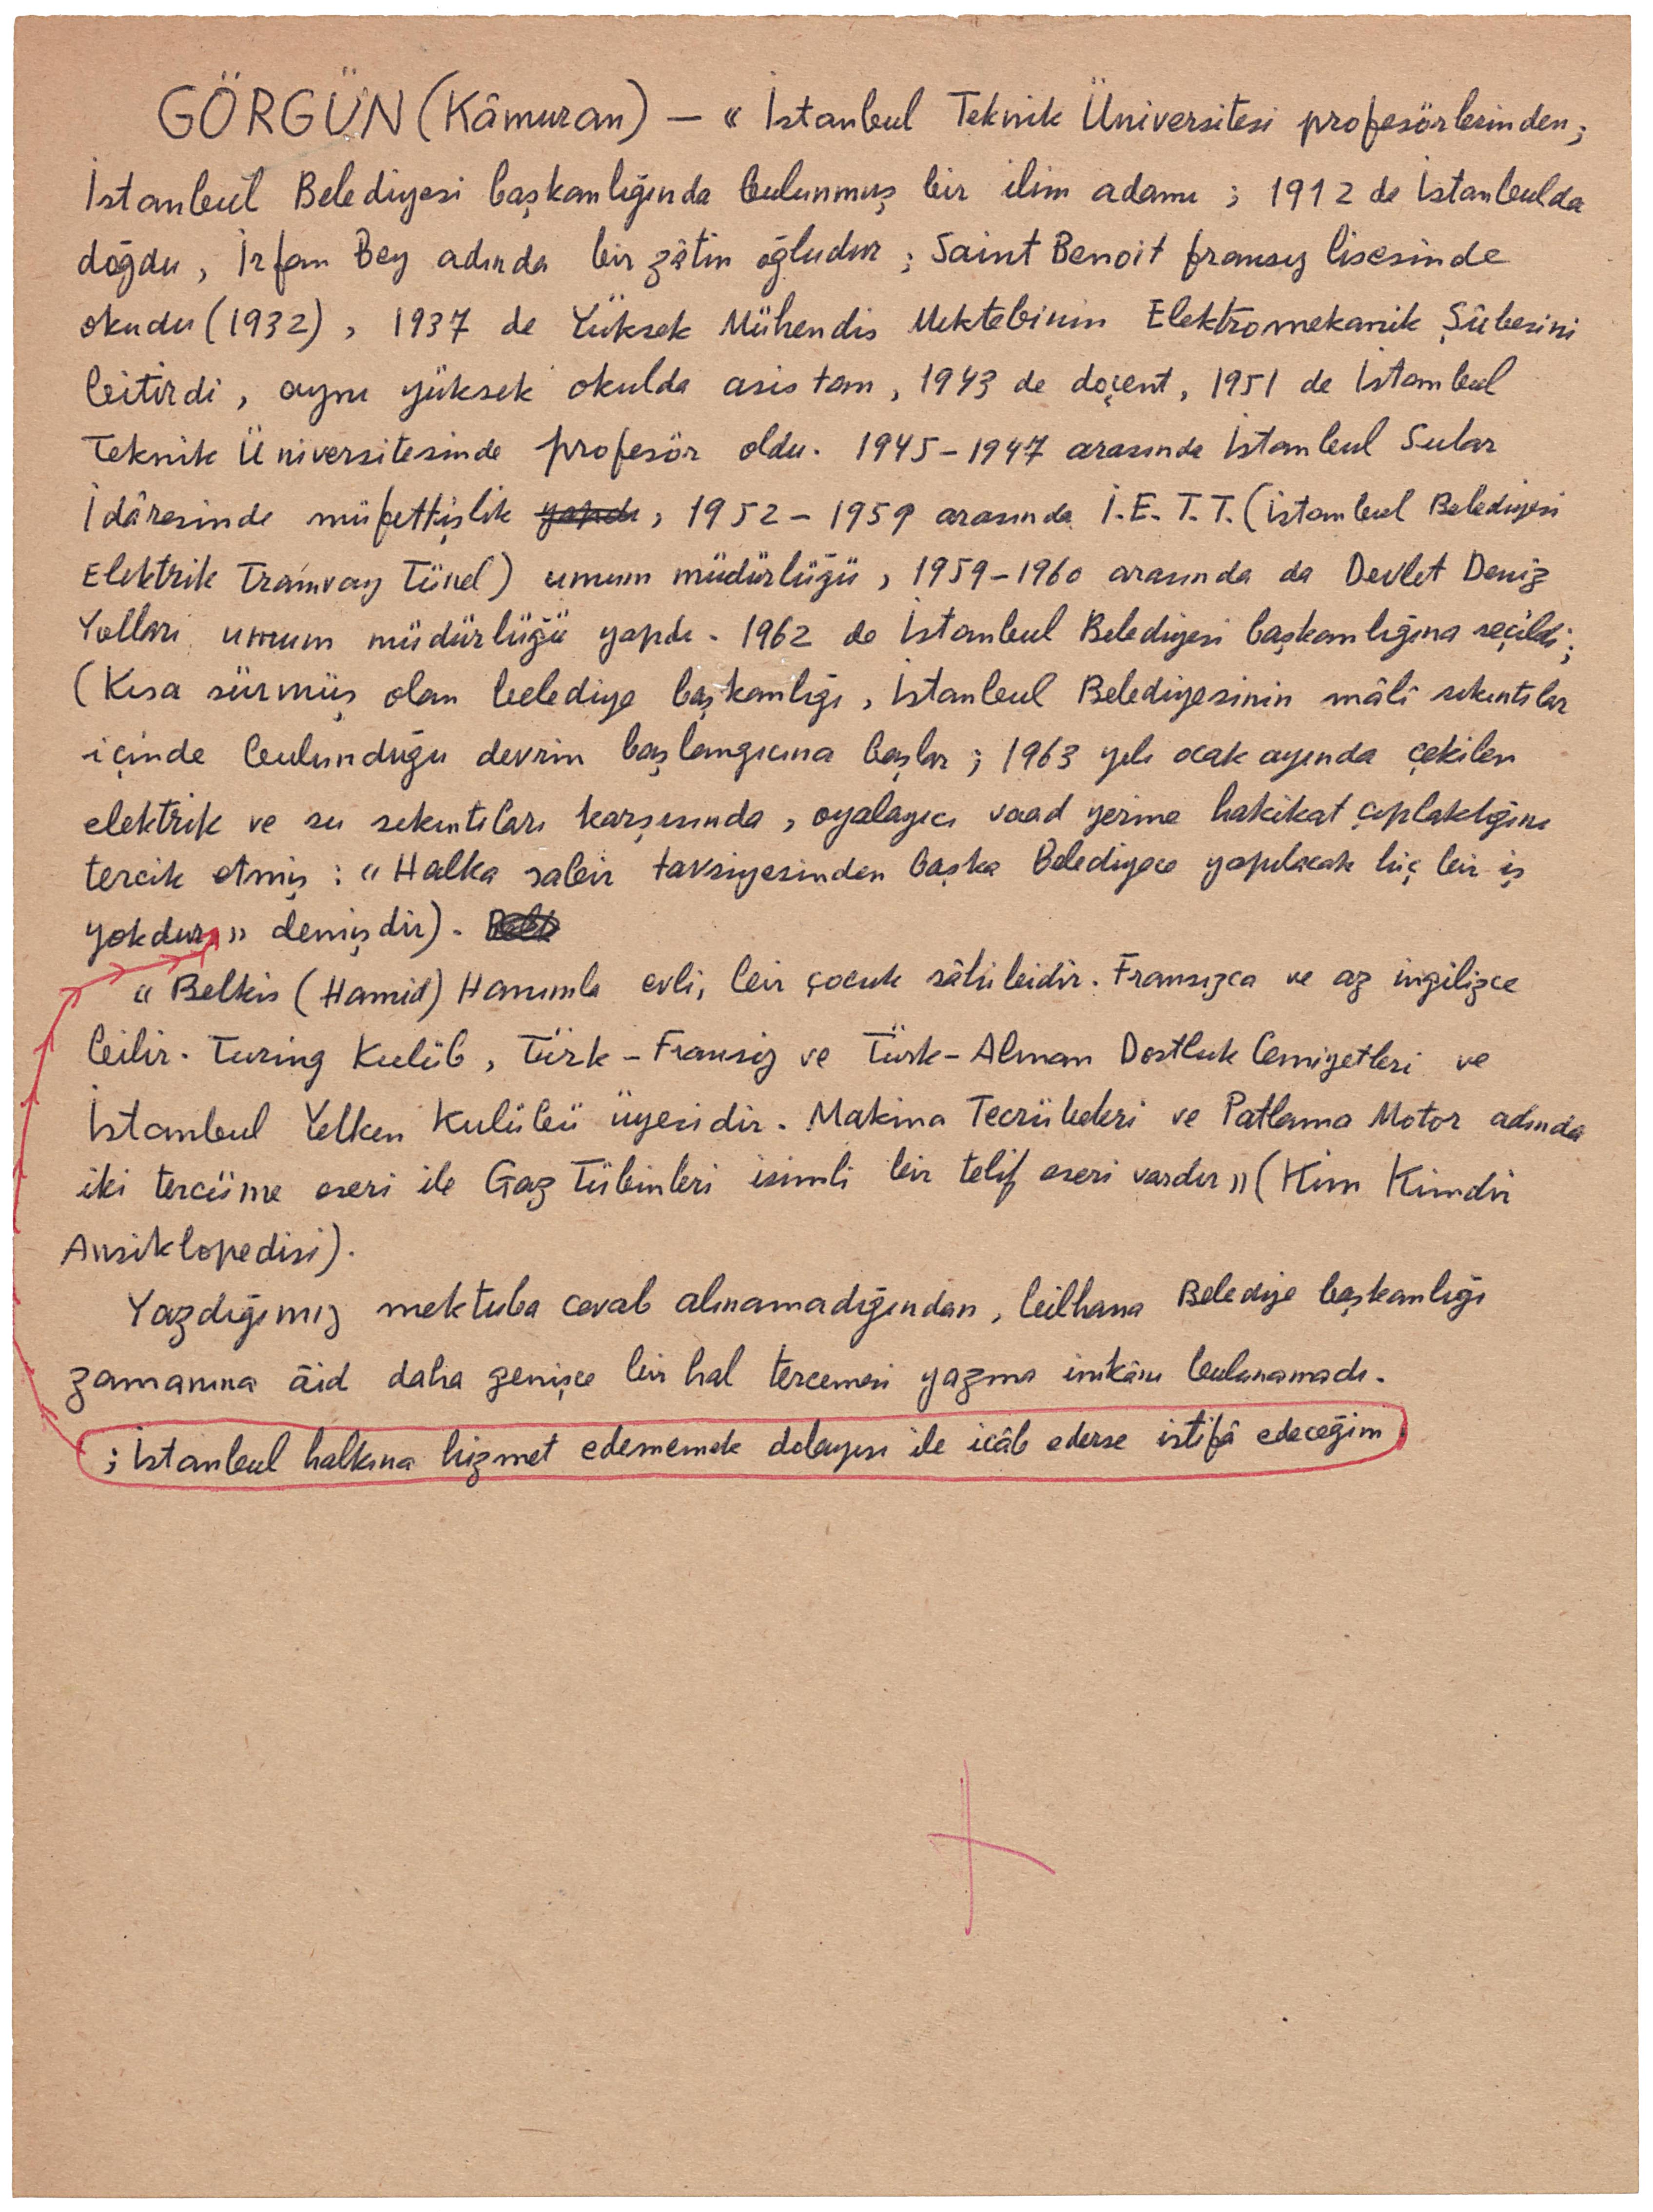 GÖRGÜN (Kâmuran) — « İstanbul Teknik Üniversitesi profesörlerinden;
İstanbul Belediyesi başkanlığında bulunmuş bir ilim adamı ; 1912 de İstanbulda
doğdu, İrfan Bey adında bir zâtin oğludur ; Saint Benoit fransız lisesinde
okudu (1932) , 1937 de Yüksek Mühendis Mektebinin Elektromekanik Şûbesini
bitirdi , aynı yüksek okulda asistan , 1943 de doçent , 1951 de İstanbul
Teknik Üniversitesinde profesör oldu. 1945-1947 arasında İstanbul Sular
İdâresinde müfettişlik yapdı , 1952 - 1959 arasında İ.E.T.T. (İstanbul Belediyesi
Elektrik Tramvay Tünel) umum müdürlüğü , 1959-1960 arasında da Devlet Deniz
Yolları umum müdürlüğü yapdı. 1962 de İstanbul Belediyesi başkanlığına seçildi ;
(Kısa sürmüş olan belediye başkanlığı , İstanbul Belediyesinin mâlî sıkıntılar
içinde bulunduğu devrin başlangıcına başlar ; 1963 yılı ocak ayında çekilen
elektrik ve su sıkıntıları karşısında , oyalayıcı vaad yerine hakikat çıplaklığını
tercik etmiş : « Halka sabır tavsiyesinden başka Belediyece yapılacak hiç bir iş
yokdur » demişdir) .
« Belkis (Hamid) Hanımla evli, bir çocuk sâhibidir. Fransızca ve az ingilizce
bilir. Turing Kulüb , Türk - Fransız ve Türk-Alman Dostluk Cemiyetleri ve
İstanbul Yelken Kulübü üyesidir. Makina Tecrübeleri ve Patlama Motor adında
iki tercüme eseri ile Gaz Tübinleri isimli bir telif eseri vardır » (Kim Kimdir
Ansiklopedisi).
Yazdığımız mektuba cevab alınamadığından , bilhana Belediye başkanlığı
zamanına âid daha genişce bir hal tercemesi yazma imkânı bulunamadı.
; İstanbul halkına hizmet edememek dolayısı ile icâb ederse istifâ edeceğim